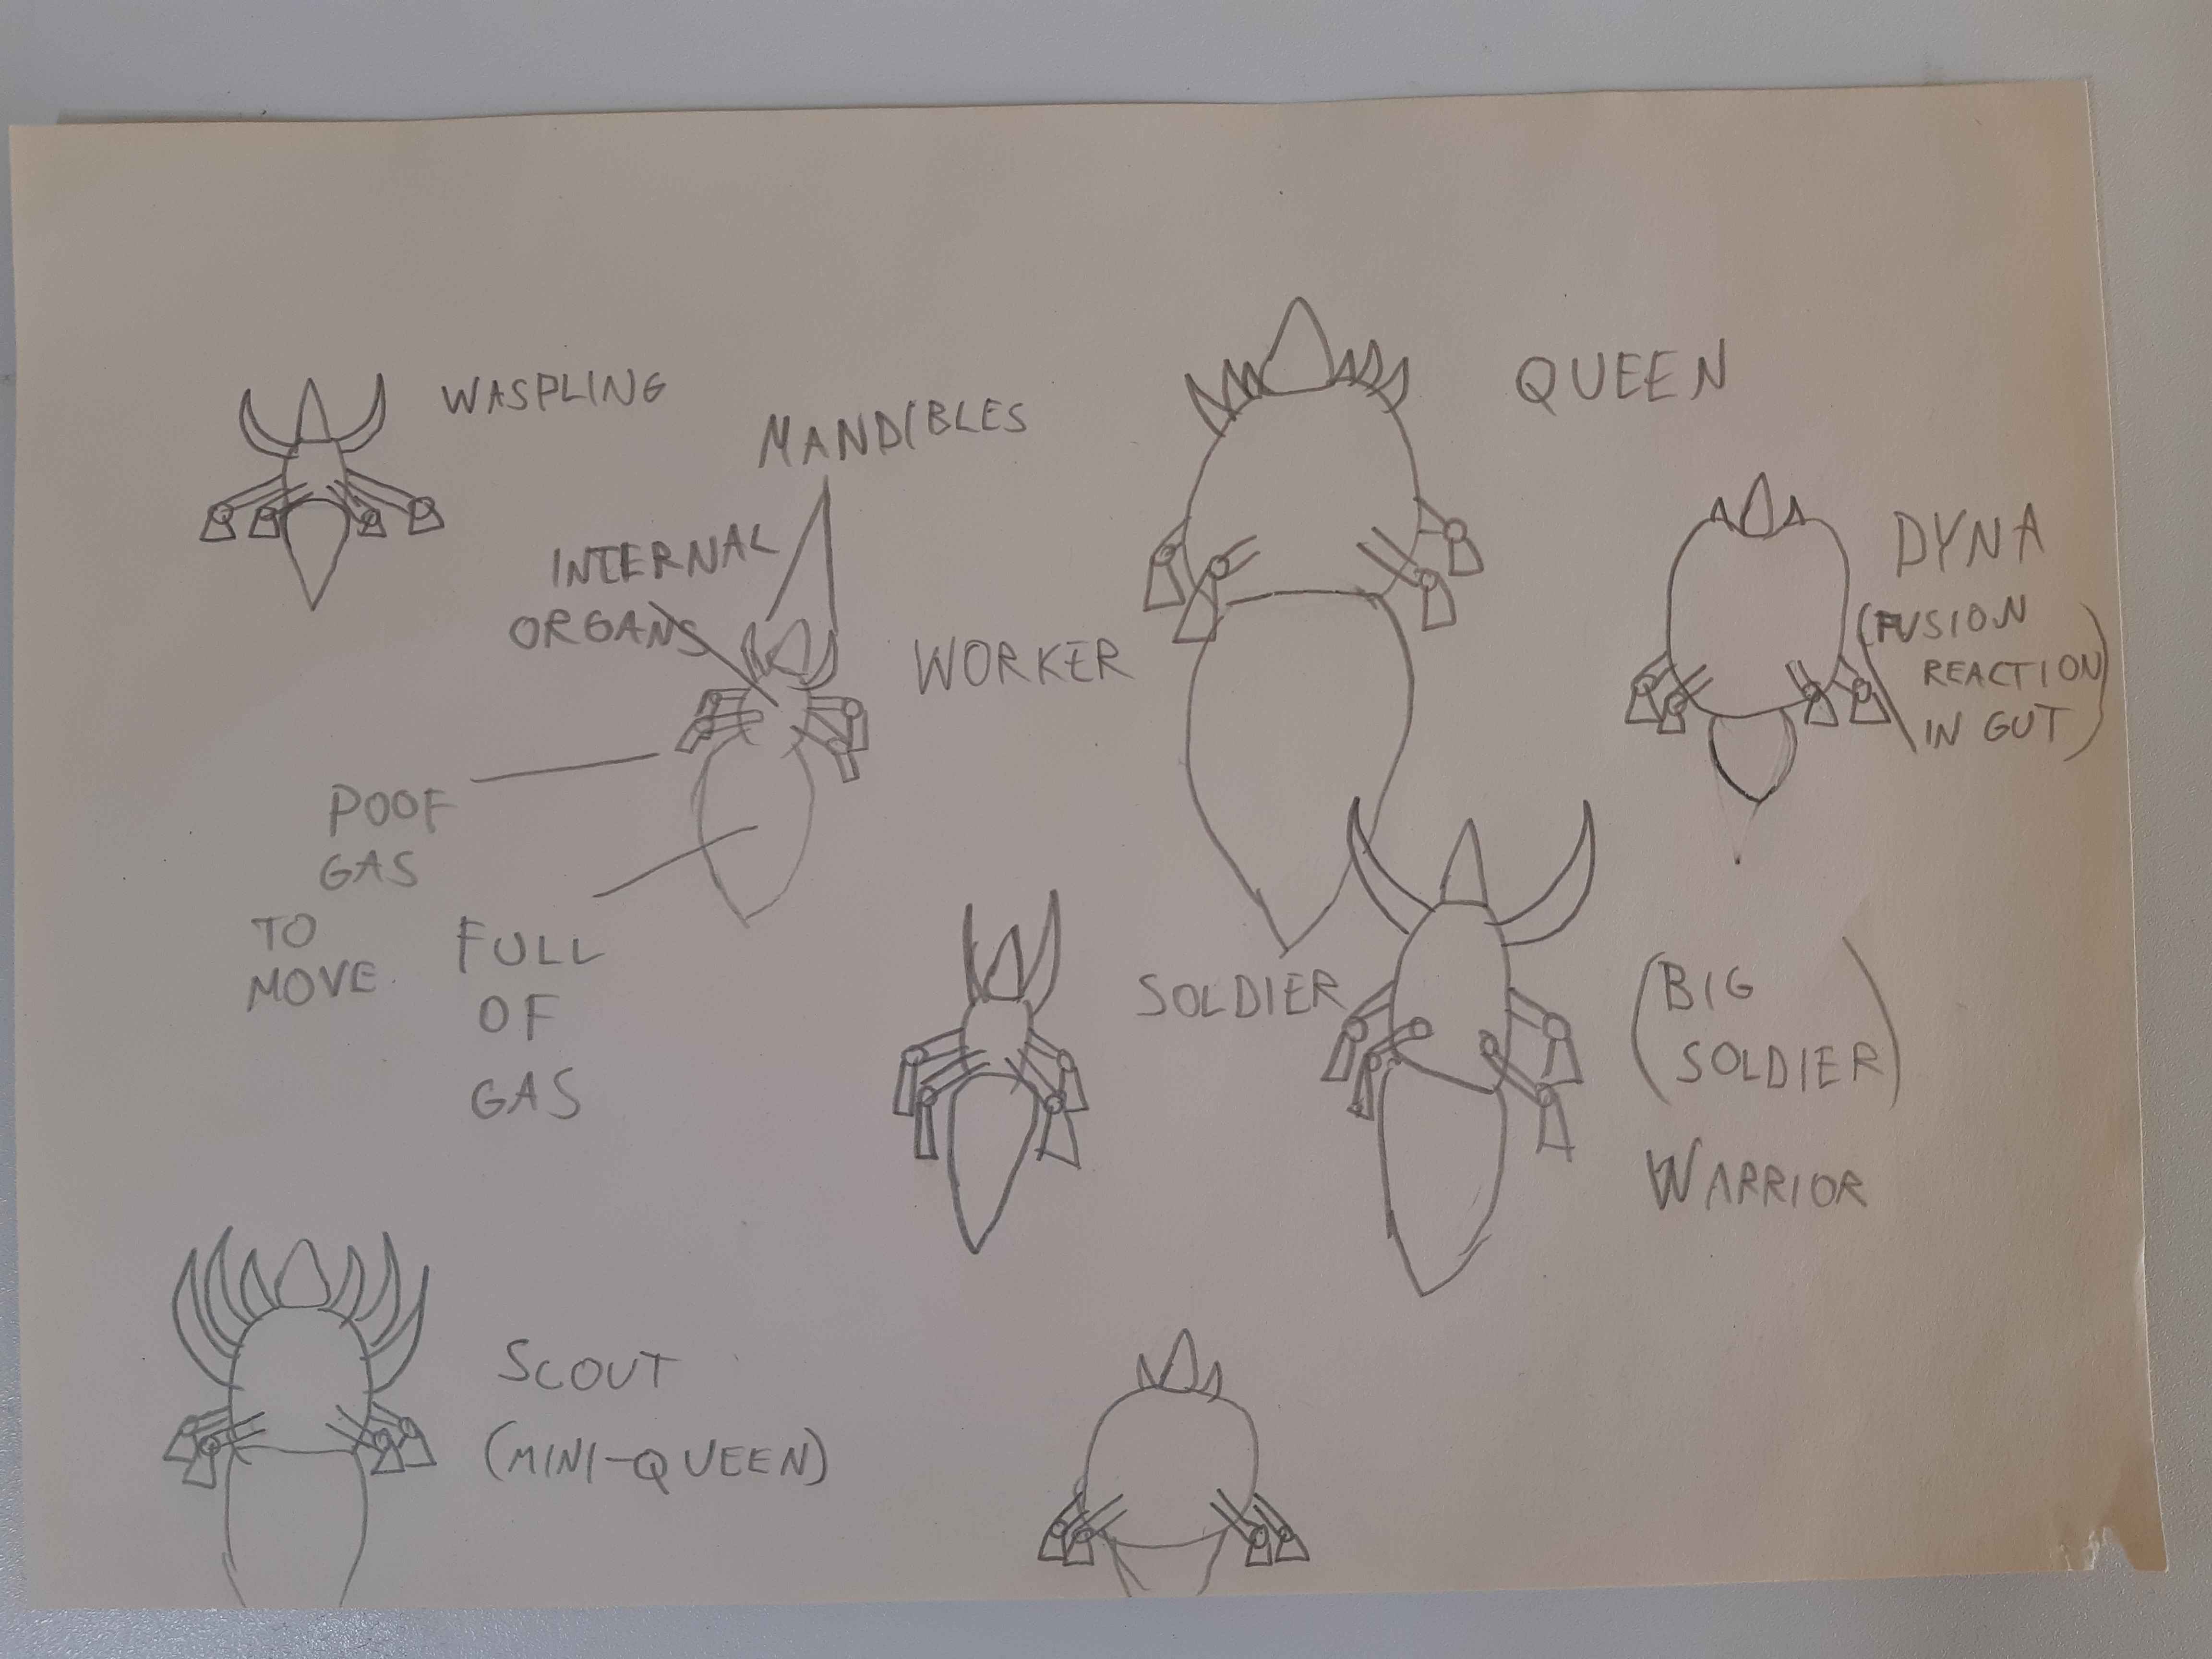 WASPLING
MANDIBLES
INTERNAL
ORGANS
WORKER
POOF
GAS
TO
MOVE.
FULL
OF
GAS
QUEEN
DYNA
(FUSION
REACTION
IN GUT)
SOLDIER
(BIG
SOLDIER)
WARRIOR
SCOUT
(MINI-QUEEN)